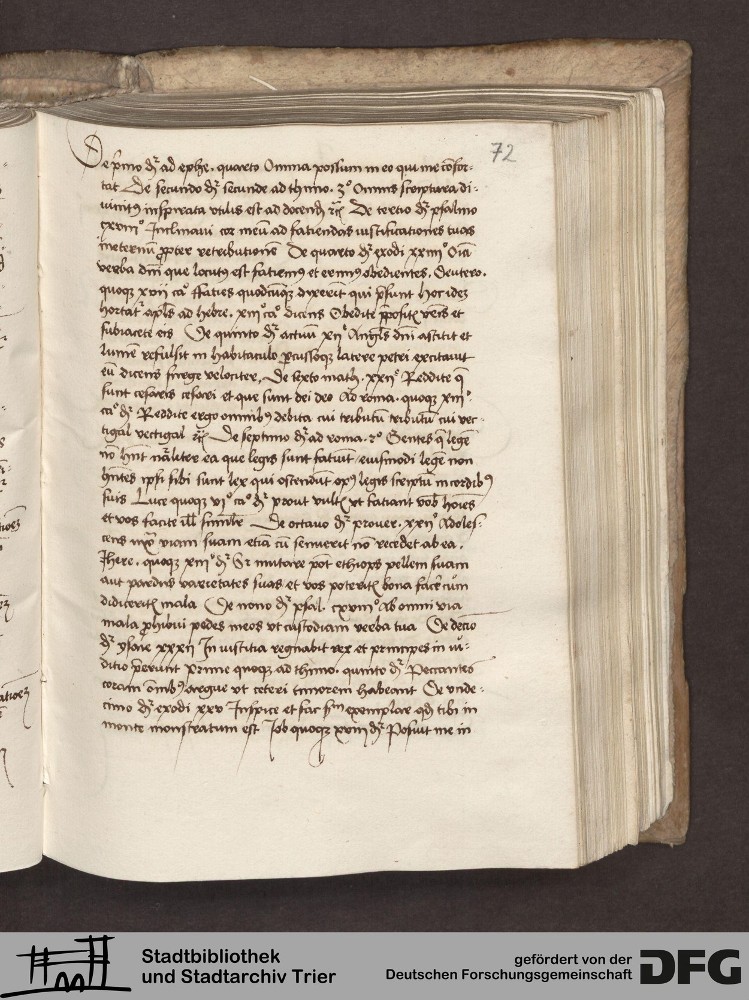 72
De p̄mo dr̄ ad ephe. quarto Omnia possum in eo qui me cōfor-
tat De secundo dr̄ secunde ad thimo. 3° Omnis scriptura di-
uinitꝰ inspirata vtilis est ad docend̄ rc̄ De tertio dr̄ psalmo
cxviii° Inclinaui cor meū ad faciendas iustificationes tuas
ineternū ꝓpter retributionē De quarto dr̄ exodi xxiiii° Oīa
verba dnī que locutꝰ est faciemꝰ et erimꝰ obedientes. Deutero.
quoqꝫ xvii ca° ffacies quodcūqꝫ dixerīt qui p̄sunt Hoc idez
hortat᷑ apl̄s ad hebre. xiii° ca° dicens Obedite p̄positꝭ vr̄is et
subiacete eis De quinto dr̄ actuū xii° Angl̄s dnī astitit et
lumē refulsit in habitaculo ꝑcussoqꝫ latere petri excitauit
eū dicens surge velociter. De sexto math. xxii° Reddite q̄
sunt cesaris cesari et que sunt dei deo Ad roma. quoqꝫ xiii°
ca° dr̄ Reddite ergo omnibꝰ debita cui tributū tributū cui vec-
tigal vectigal rc̄ De septimo dr̄ ad roma. 2° Gentes q̄ legē
nō hn̄t nāliter ea que legis sunt faciūt eiusmodi legē non
hn̄tes ipsi sibi sunt lex qui ostendūt opꝰ legis scriptū in cordibꝰ
suis Luce quoqꝫ vi° ca° dr̄ prout vultꝭ vt faciant vob̄ hoīes
et vos facite ill̄ similr̄ De octauo dr̄ prouer. xxii° Adoles-
cens iux̄ viam suam etiā cū senuerit nō recedet ab ea.
Ihere. quoqꝫ xiii° dr̄ Si mutare pōt ethiops pellem suam
aut pardus varietates suas et vos poteritꝭ bona fac̄e cūm
didiceritꝭ mala De nono dr̄ psal. cxviii° Ab omni via
mala ꝓhibui pedes meos vt custodiam verba tua De decīo
dr̄ ysaie xxxii In iusticia regnabit rex et principes in iu-
dicio p̄erunt Prime quoqꝫ ad thimo. quinto dr̄ Peccantes
coram ōnibꝰ argue vt ceteri timorem habeant De vnde-
cimo dr̄ exodi xxv Inspice et fac s̄m exemplar qd̄ tibi in
monte monstratum est Job quoqꝫ xvii dr̄ Posuit me in
Stadtbibliothek
und Stadtarchiv Trier
gefördert von der
Deutschen Forschungsgemeinschaft
DFG